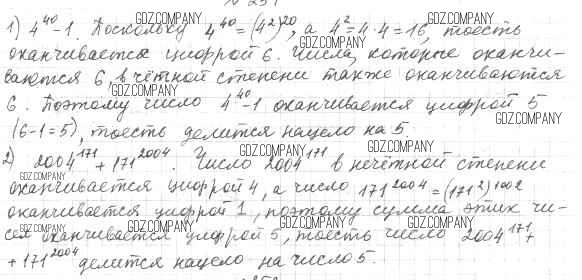 1) 4^40-1. Поскольку 4^40=(4^2)^20, а 4^2=4·4=16, тоесть
оканчивается цифрой 6. Числа, которые оканчи-
ваются 6, в чётной степени также оканчиваются
6. Поэтому число 4^40-1 оканчивается цифрой 5
(6-1=5), тоесть делится нацело на 5.
2) 2004^171+171^2004. Число 2004^171 в нечётной степени
оканчивается цифрой 4, а число 171^2004=(171^2)^1002
оканчивается цифрой 1, поэтому сумма этих чи-
сел оканчивается цифрой 5, тоесть число 2004^171+
+171^2004 делится нацело на число 5.
GDZ.COMPANY
GDZ.COMPANY
GDZ.COMPANY
GDZ.COMPANY
GDZ.COMPANY
GDZ.COMPANY
GDZ.COMPANY
GDZ.COMPANY
GDZ.COMPANY
GDZ.COMPANY
GDZ.COMPANY
GDZ.COMPANY
GDZ.COMPANY
GDZ.COMPANY